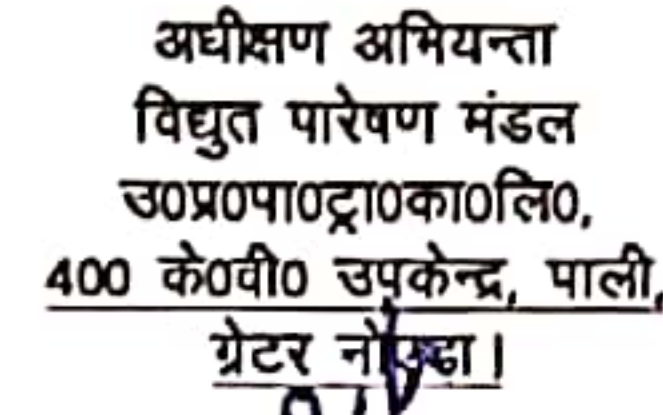 अधीक्षण अभियन्ता
विद्युत पारेषण मंडल
उ0प्र0पा0ट्रा0का0लि0,
400 के0वी0 उपकेन्द्र, पाली,
ग्रेटर नोएडा।